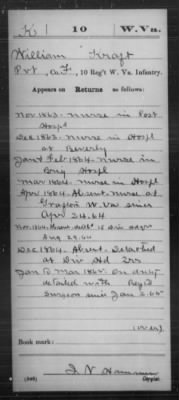 K 10 W.Va.
William Kraft
Pvt, Co. F, 10 Reg't W. Va. Infantry.
Appears on Returns as follows:
Nov 1863. Nurse in Post
Hospl
Dec 1863. Nurse in Hospl
at Beverly
Jan & Feb 1864. Nurse in
Hospl
Mar 1864. Nurse in Hospl
Apr 1864. Absent. Nurse at
Grafton W. Va since
Apr 24.64
Nov. 1864. Absent. Div
Aug 29.64
Dec 1864. Absent. Detached
at Div Hd Qrs
Jan to Mar 1865. On duty
detailed with Reg'l
Surgeon since Jan 2.65
Book mark:
Copyist.